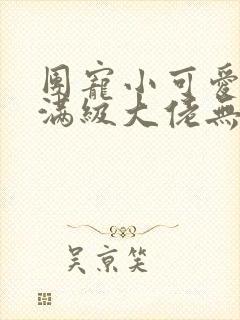 團寵小可愛
滿級大佬無
吴京笑